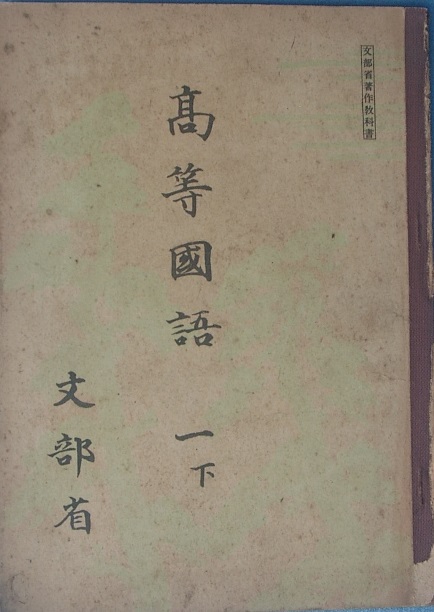 文部省著作教科書
髙等國語 一下
文部省